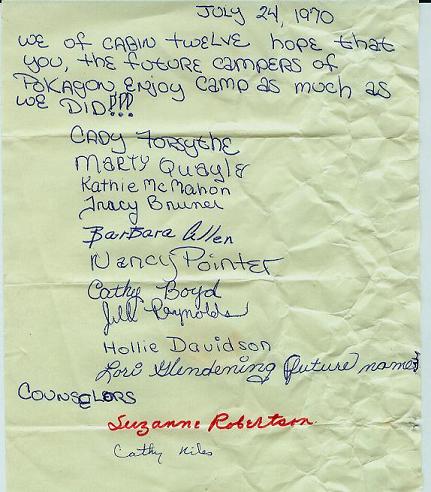 JULY 24, 1970
WE OF CABIN TWELVE HOPE that
YOU, the future campers of
POKAGON, ENJOY CAMP as much as
WE DID!!!
CADY Forsythe
MARTY Quayle
Kathie McMahon
Tracy Bruner
Barbara Allen
Nancy Pointer
Cathy Boyd
Jill Reynolds
Hollie Davidson
Lori Glendening (future name)
COUNSELORS
Suzanne Robertson
Cathy Niles